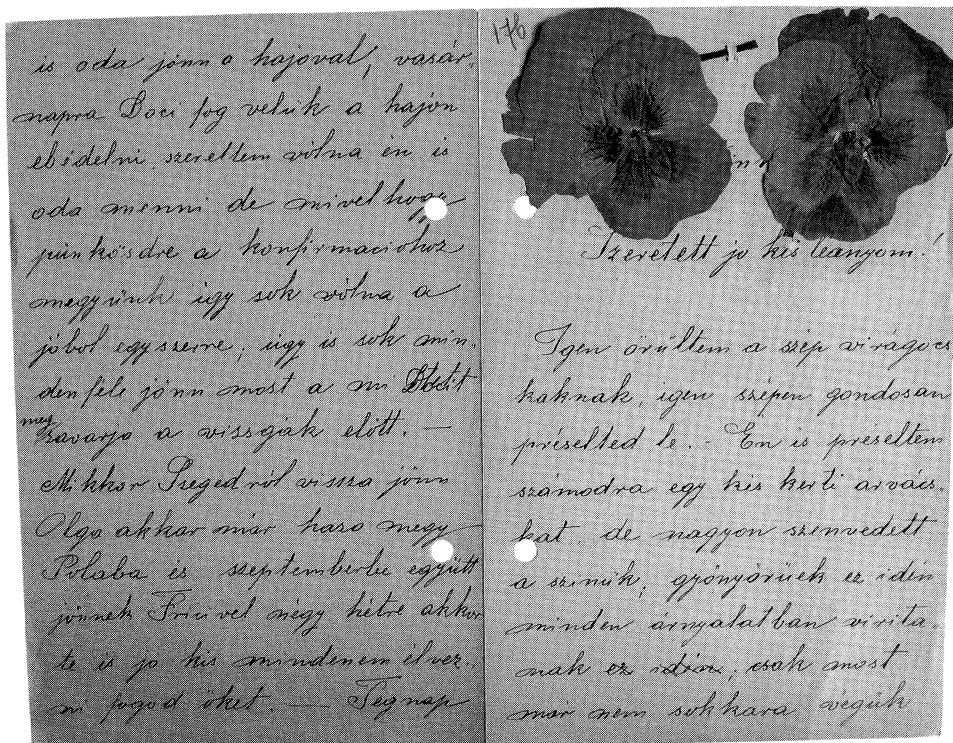 is oda jönn a hajoval, vasár-
napra Doci fog velük a hajón
ebédelni szerettem volna en is
oda menni de mivel hogy
pünkösdre a konfirmaciohoz
megyünk igy sok volna a
jóbol egyszerre, úgy is sok min-
denféle jönn most a mi
meg
zavarja a vissgák elött. —
Mikkor Szegedról vissza jönn
Olga akkar már haza megy
Polaba és szeptemberbe együtt
jönnek Friuvel négy hétre akkor
te is jo kis mindenem élvez-
ni fogod öket. — Tegnap
176
Szeretett jo kis leányom!
Igen örültem a szép virágocs
kaknak, igen szépen gondosan
préselted le. - En is préseltem
számodra egy kis kerti árvács-
kat de nagyon szenvedett
a szinük, gyönyörüek ez idén
minden árnyalatban virita-
nak ez idén, csak most
már nem sokkara végük